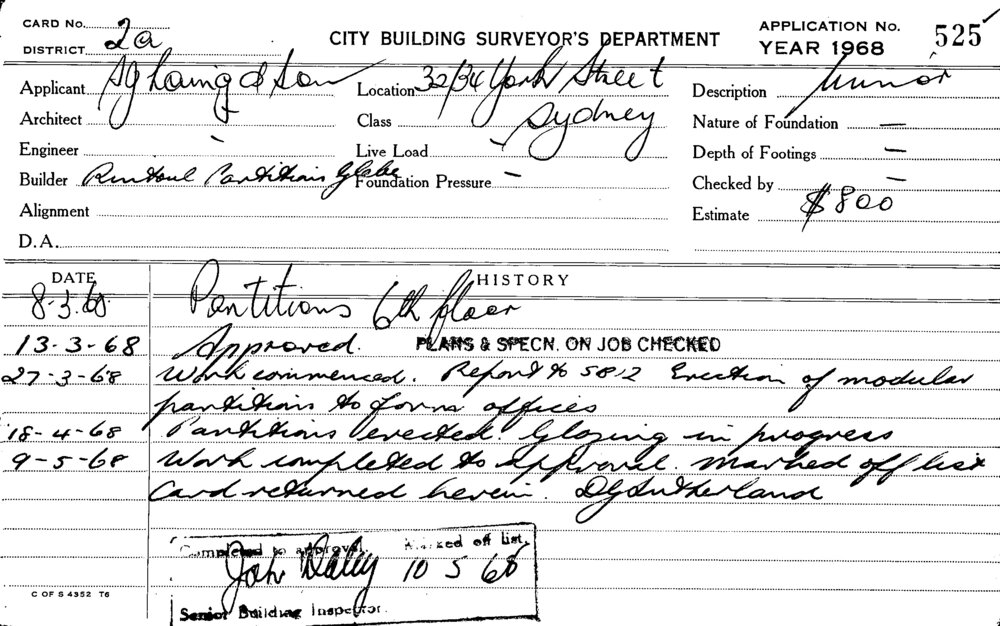 CARD No. 2a
DISTRICT
CITY BUILDING SURVEYOR'S DEPARTMENT
APPLICATION No. 525
YEAR 1968
Applicant & Son
Location 32/34 York Street
Sydney
Description Minor
Architect -
Class -
Nature of Foundation —
Engineer -
Live Load
Depth of Footings —
Builder Partitions Glebe
Foundation Pressure —
Checked by —
Alignment
Estimate $800
D.A.
DATE HISTORY
8.3.68 Partitions 6th floor
13-3-68 Approved. PLANS & SPECN. ON JOB CHECKED
27-3-68 Work commenced. Report to 58.2 Erection of modular
partitions to form offices
18-4-68 Partitions erected. Glazing in progress
9-5-68 Work completed to approval. Marked off list
Card returned herein. DG Sutherland
Completed to approval. Marked off list.
Daley 10 5 68
Senior Building Inspector.
C OF S 4352 T6